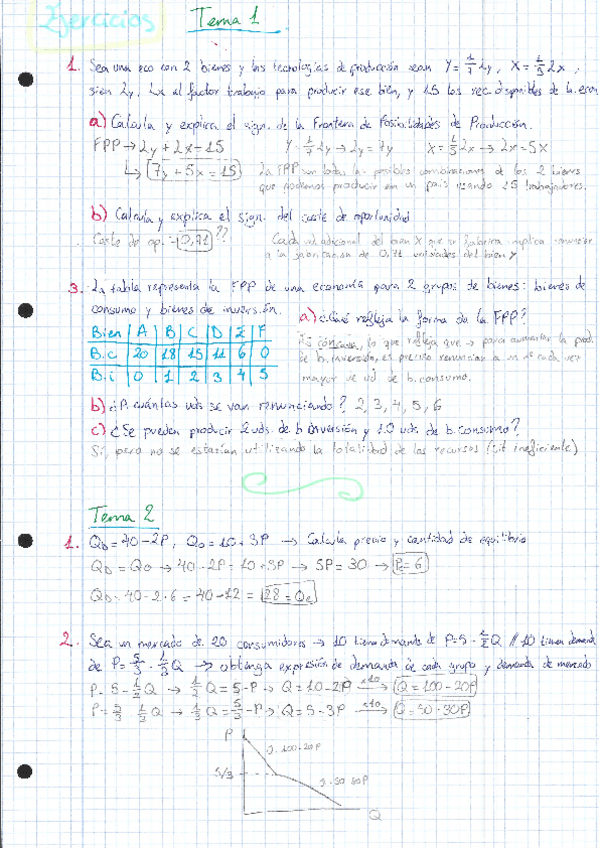 Ejercicios Tema 1
1. Sea una eco con 2 bienes y las tecnologías de producción sean Y = 1/7 Ly, X = 1/5 Lx,
sien Ly, Lx el factor trabajo para producir ese bien, y 15 los rec. disponibles de la econ
a) Calcula y explica el sign. de la Frontera de Posibilidades de Producción.
FPP → Ly + Lx = 15 Y = 1/7 Ly → Ly = 7y X = 1/5 Lx → Lx = 5X
↳ 7y + 5x = 15 La FPP son todas las posibles combinaciones de los 2 bienes
que podemos producir en un país usando 15 trabajadores.
b) Calcula y explica el sign. del coste de oportunidad
Coste de op. = 0,71 ?? Cada ud adicional del bien X que se fabrica implica renunciar
a la fabricación de 0,71 unidades del bien Y
3. La tabla representa la FPP de una economía para 2 grupos de bienes: bienes de
consumo y bienes de inversión. a) ¿Qué refleja la forma de la FPP?
Bien | A | B | C | D | E | F
B.c | 20 | 18 | 15 | 11 | 6 | 0
B.i | 0 | 1 | 2 | 3 | 4 | 5
Es cóncava, lo que refleja que → para aumentar la prod.
de b. inversión, es preciso renunciar a un nº cada vez
mayor de ud de b. consumo.
b) ¿A cuántas uds se van renunciando? 2, 3, 4, 5, 6
c) ¿Se pueden producir 2 uds. de b. inversión y 10 uds. de b. consumo?
Sí, pero no se estarían utilizando la totalidad de los recursos (sit ineficiente)
Tema 2
1. QD = 40 - 2P, QO = 10 + 3P → Calcula precio y cantidad de equilibrio
QD = QO → 40 - 2P = 10 + 3P → 5P = 30 → P = 6
QD = 40 - 2·6 = 40 - 12 = 28 = Qe
2. Sea un mercado de 20 consumidores → 10 tienen demanda de P = 5 - 1/2 Q // 10 tienen demanda
de P = 5/3 - 1/3 Q → obtenga expresión de demanda de cada grupo y demanda de mercado
P = 5 - 1/2 Q → 1/2 Q = 5 - P → Q = 10 - 2P ×10→ Q = 100 - 20P
P = 5/3 - 1/3 Q → 1/3 Q = 5/3 - P → Q = 5 - 3P ×10→ Q = 50 - 30P
P
100-20P
5/3
Q